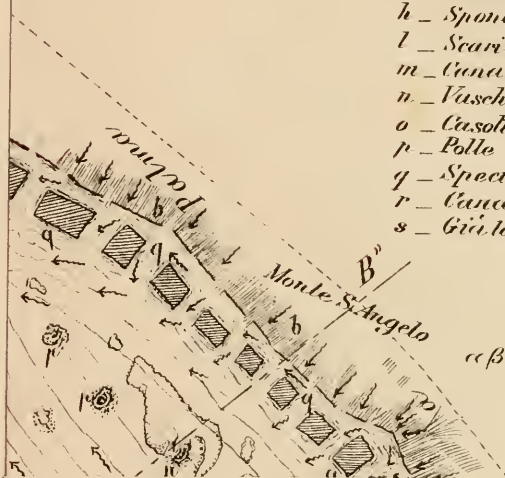 h _ Spon
l _ Scari
m _ Cana
n _ Vasch
o _ Casol
p _ Polle
q _ Spec
r _ Cana
s _ Già l
palma
b
q
q
B"
Monte S. Angelo
b
αβ
p
p
q
q